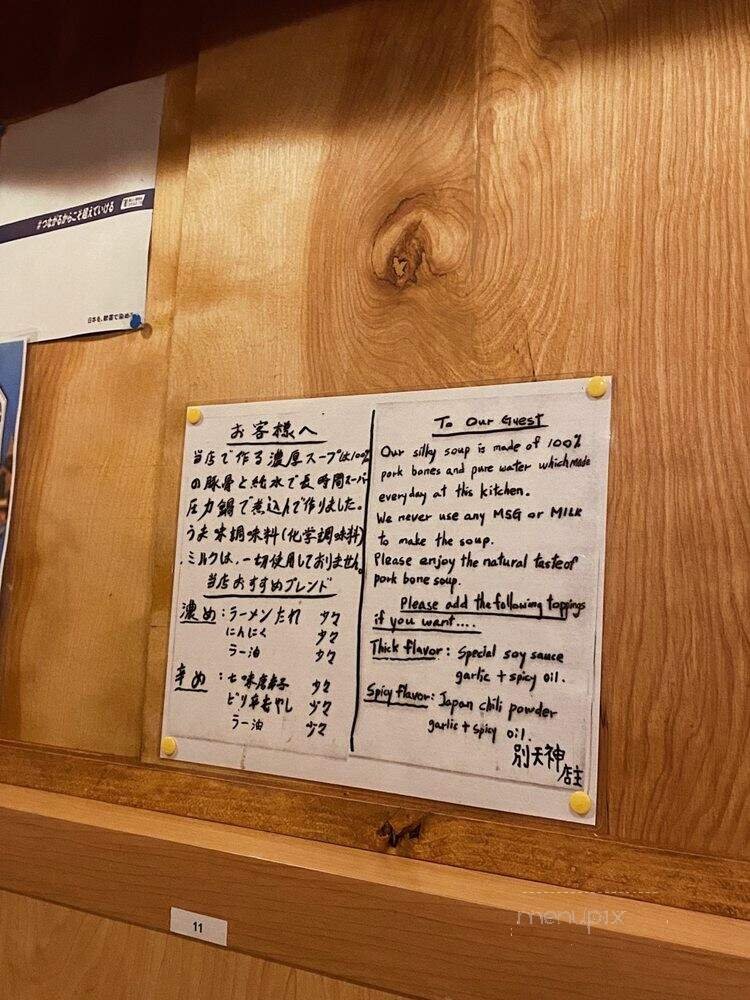 #つながるからこそ超えていける
お客様へ
当店で作る濃厚スープは100%
の豚骨と純水で長時間スーパー
圧力鍋で煮込んで作りました。
うま味調味料(化学調味料)
ミルクは、一切使用しておりません。
当店おすすめブレンド
濃め:ラーメンたれ 少々
にんにく 少々
ラー油 少々
辛め:七味唐辛子 少々
ピリ辛もやし 少々
ラー油 少々
To Our Guest
Our silky soup is made of 100%
pork bones and pure water which made
everyday at this kitchen.
We never use any MSG or MILK
to make the soup.
Please enjoy the natural taste of
pork bone soup.
Please add the following toppings
if you want....
Thick flavor: Special soy sauce
garlic + spicy oil.
Spicy flavor: Japan chili powder
garlic + spicy oil.
別天神
店主
11
menupix